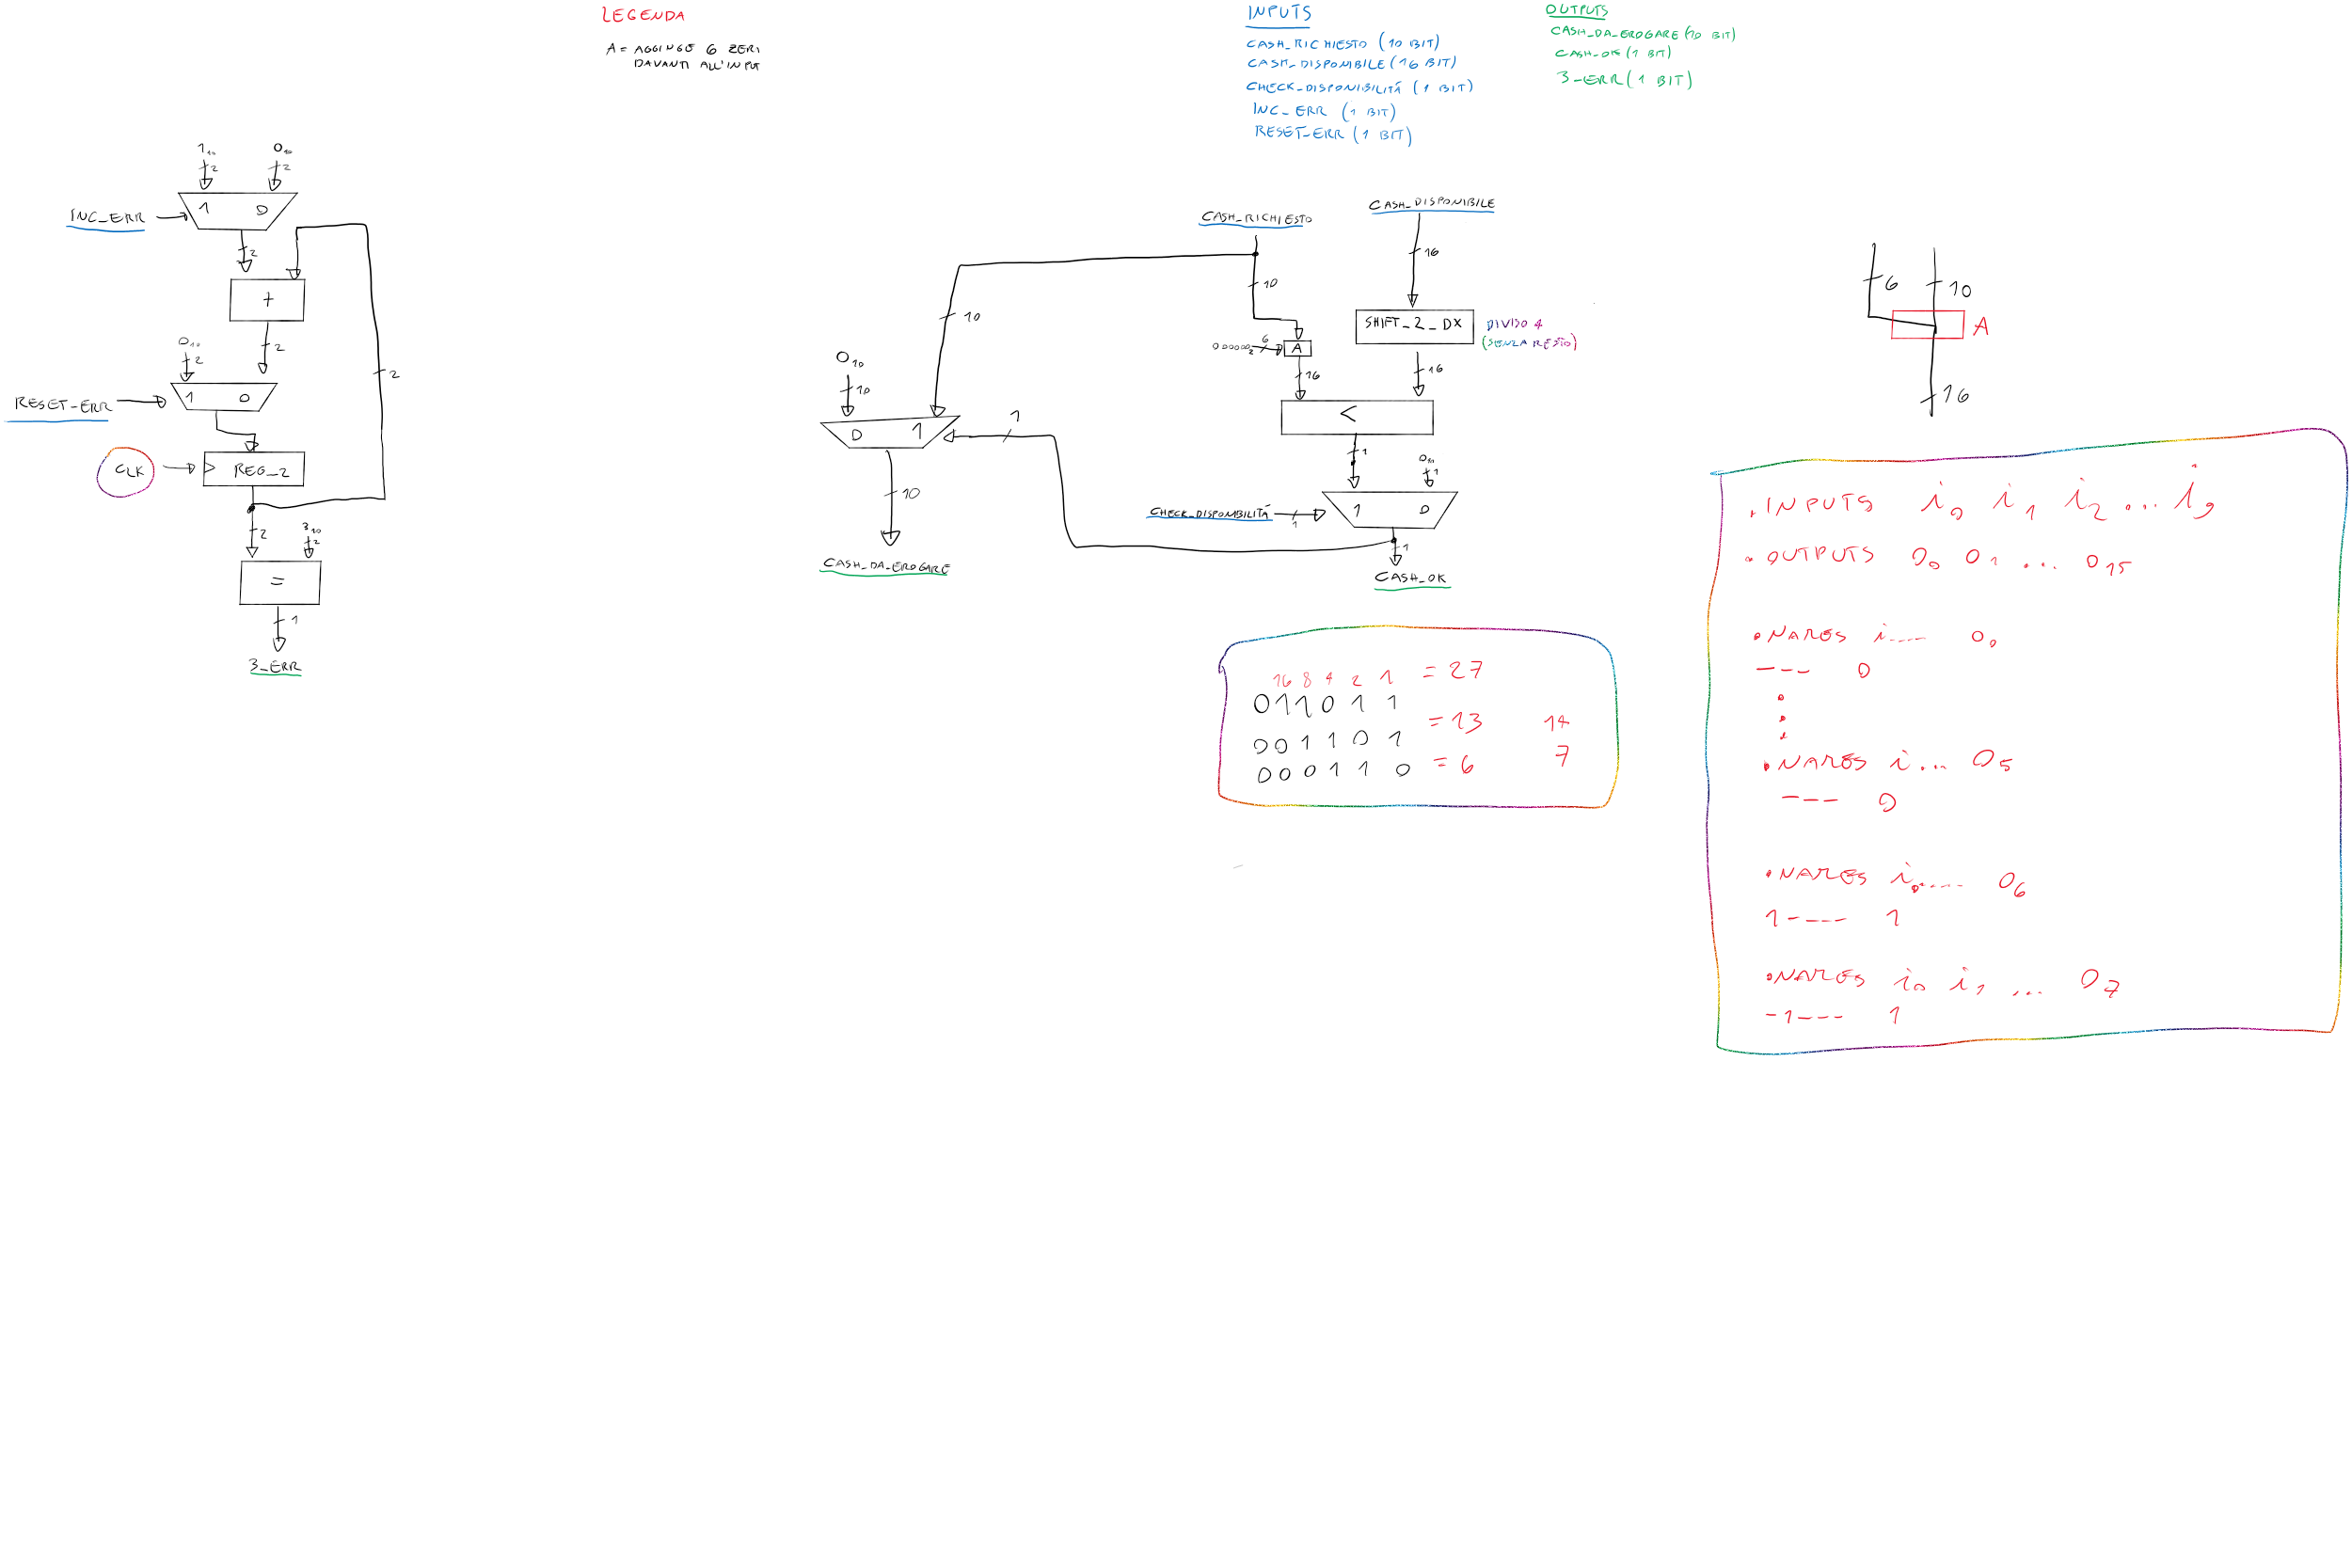 LEGENDA
A = AGGIUNGE 6 ZERI
DAVANTI ALL'INPUT
INPUTS
CASH_RICHIESTO (10 BIT)
CASH_DISPONIBILE (16 BIT)
CHECK_DISPONIBILITÁ (1 BIT)
INC_ERR (1 BIT)
RESET_ERR (1 BIT)
OUTPUTS
CASH_DA_EROGARE (10 BIT)
CASH_OK (1 BIT)
3_ERR (1 BIT)
1₁₀ 0₁₀
2 2
INC_ERR 1 0
2
+
0₁₀
2 2
2
RESET_ERR 1 0
CLK REG_2
2 3₁₀
2
=
1
3_ERR
CASH_RICHIESTO CASH_DISPONIBILE
16
10
10
SHIFT_2_DX DIVISO 4
(SENZA RESTO)
000000₂ 6 A
0₁₀
10
16 16
<
0 1 1
1 0₁₀
1
10
CHECK_DISPONIBILITÁ 1 1 0
1
CASH_DA_EROGARE
CASH_OK
6 10
A
16
16 8 4 2 1 = 27
011011
= 13 14
001101
= 6 7
000110
.INPUTS i₀ i₁ i₂ ... i₉
.OUTPUTS O₀ O₁ ... O₁₅
.NAMES i---- O₀
--- 0
.NAMES i... O₅
--- 0
.NAMES i₀.... O₆
1---- 1
.NAMES i₀ i₁ ... O₇
-1--- 1